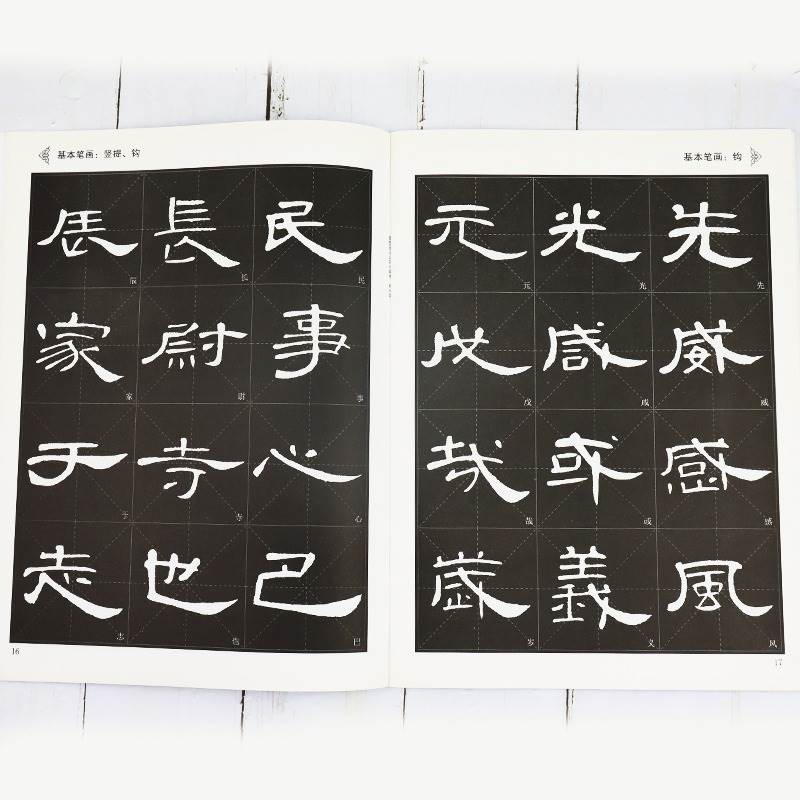 基本笔画：竖提、钩
辰 長 民
辰 长 民
家 尉 事
家 尉 事
于 寺 心
于 寺 心
志 也 巳
志 巳
16
基本笔画：钩
元 光 先
元 光 先
戊 咸 威
戊 咸 威
哉 或 感
哉 或 感
歲 義 風
岁 义 风
17